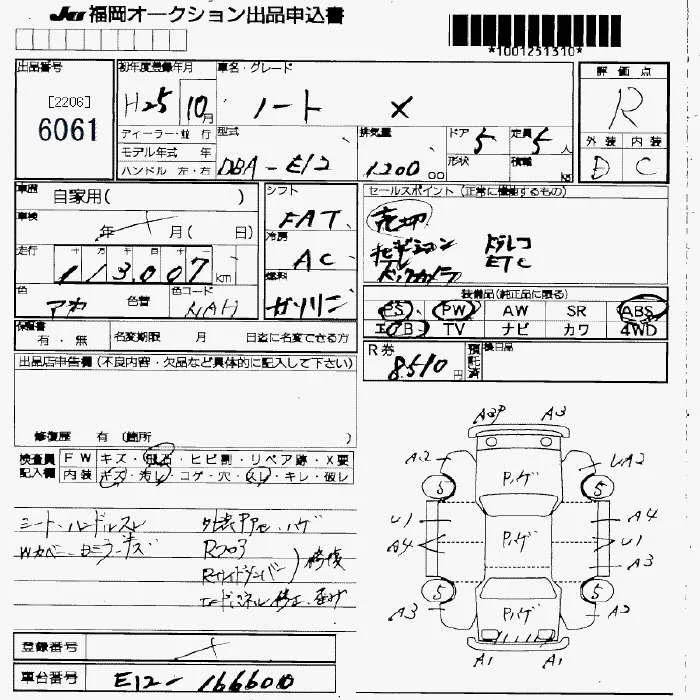 JU 福岡オークション出品申込書
*1001251310*
出品番号
[2206]
6061
初年度登録年月
H25 10月
ディーラー・並行
モデル年式 年
ハンドル 左・右
車名・グレード
ノート X
型式
DBA-E12
排気量
1200 00
ドア
5
定員
5人
形状
積載
kg
評価点
R
外装 内装
D C
車歴
自家用( )
車検
年 月( 日)
走行
十 万 千 百 十
113,007 km
色
アカ
色替
色コード
NAH
シフト
FAT
冷房
AC
燃料
ガソリン
セールスポイント(正常に機能するもの)
売切
ナビ
バックカメラ
ドラレコ
ETC
装備品(純正品に限る)
PS PW AW SR ABS
エアB TV ナビ カワ 4WD
保証書
有・無
名変期限 月 日迄に名変できる方
R券
8510円
預託済
後日品
出品店申告欄(不良内容・欠品など具体的に記入して下さい)
修復歴 有(箇所 )
検査員
記入欄
FW キズ・飛石・ヒビ割・リペア跡・X要
内装 キズ・汚レ・コゲ・穴・スレ・キレ・破レ
シート、ハンドルスレ
外装 ハゲ
修復
A3
A2
UA2
5
5
U1
A4
A4
U1
A3
5
5
A3
A2
A1
A1
Pハゲ
Pハゲ
Pハゲ
登録番号
車台番号
E12-166600